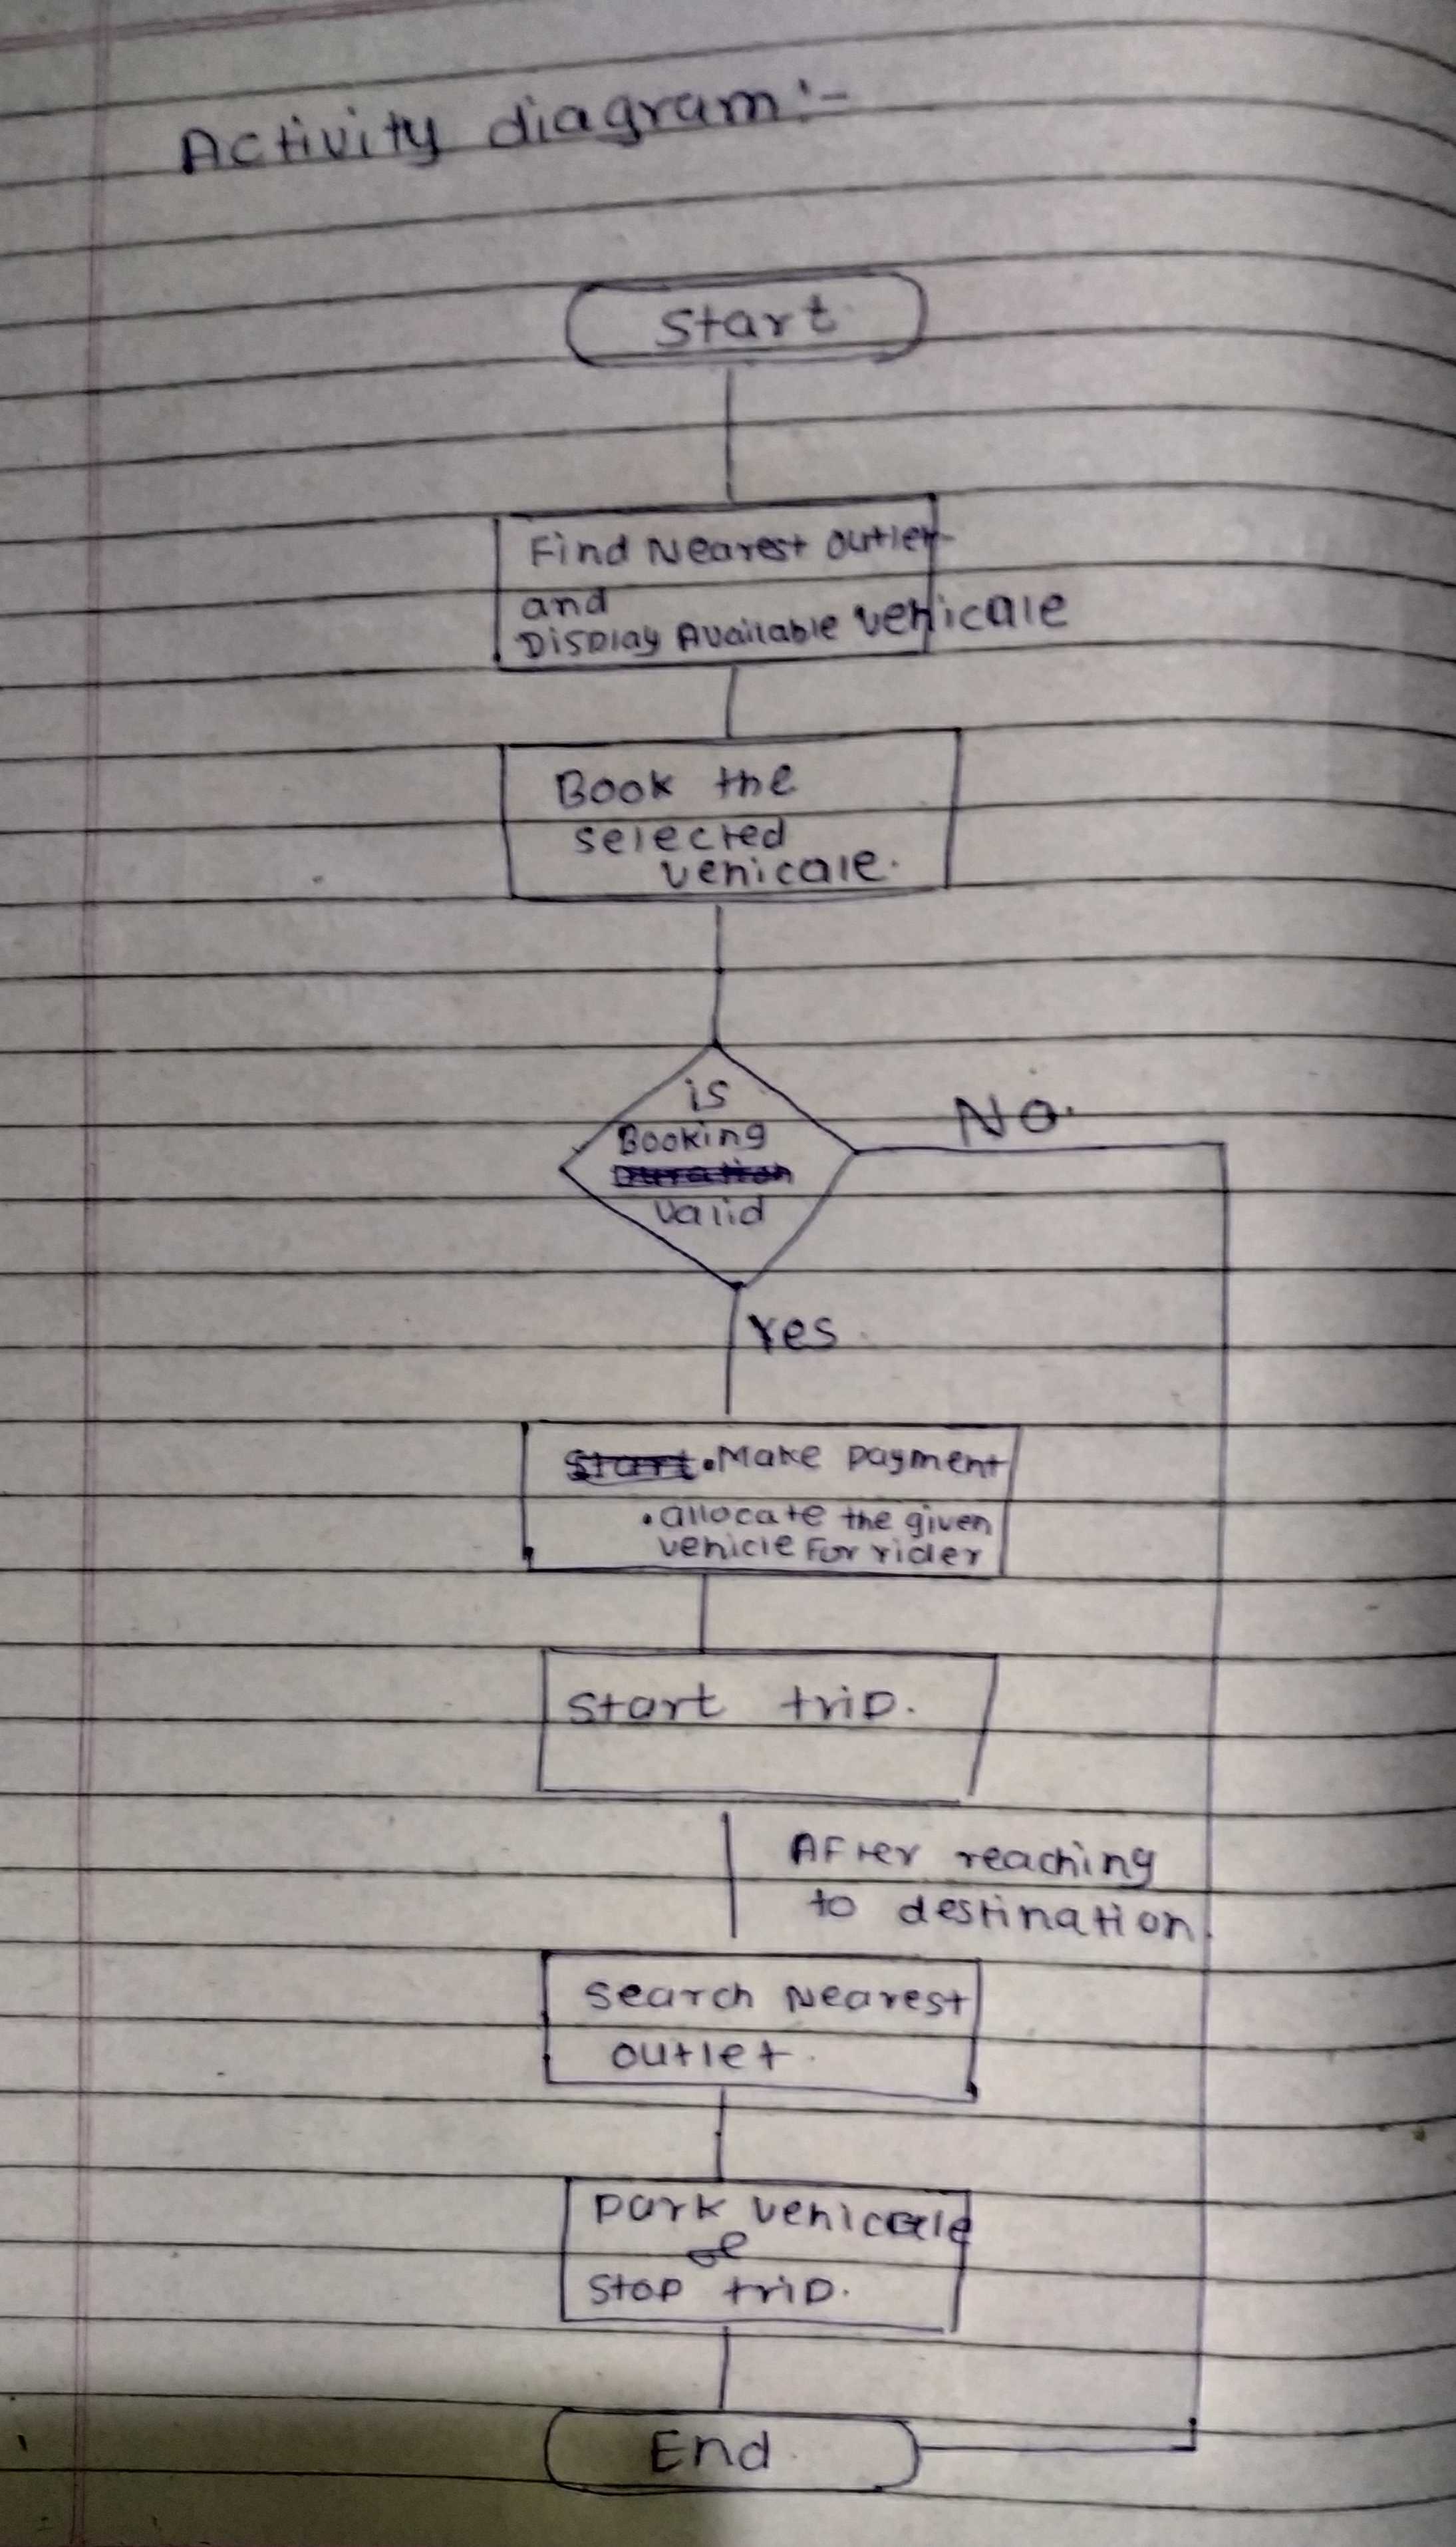 Activity diagram :-
Start
Find Nearest outlet
and
Display Available vehicale
Book the
selected
vehicale.
is
Booking
valid
No.
Yes
• Make payment
• allocate the given
vehicle For rider
Start trip.
After reaching
to destination.
Search Nearest
outlet.
park vehicale
Stop trip.
End.